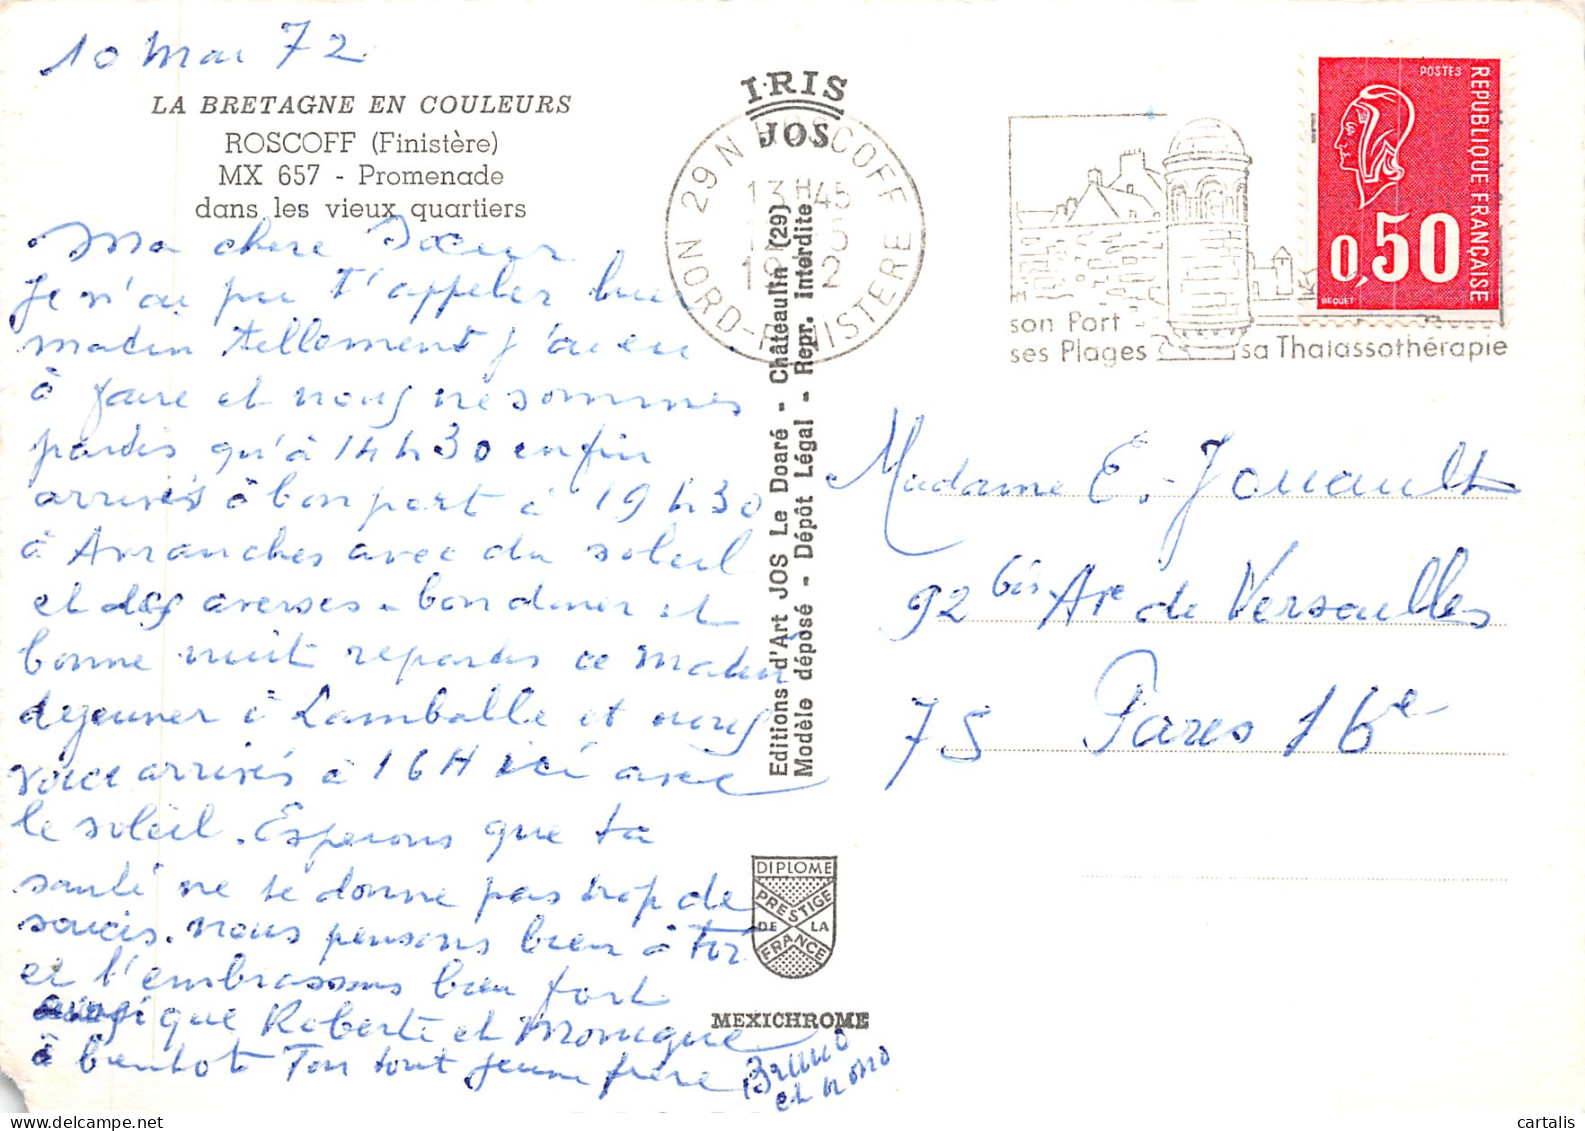 10 Mai 72
LA BRETAGNE EN COULEURS
ROSCOFF (Finistère)
MX 657 - Promenade
dans les vieux quartiers
Ma chere Sœur
Je n'ai pu t'appeler hier
matin tellement j'ai eu
à faire et nous ne sommes
partis qu'à 14 h 30 enfin
arrivés à bon port à 19 h 30
à Avranches avec du soleil
et des averses - bon diner et
bonne nuit repartis ce matin
dejeuner à Lamballe et nous
voici arrivés à 16 H ici avec
le soleil. Esperons que ta
santé ne te donne pas trop de
soucis. nous pensons bien à Toi
et t'embrassons bien fort
ainsi que Roberte et Monique
à bientot Ton tout jeune frère
Bruno
et nono
IRIS
JOS
Editions d'Art JOS Le Doaré - Châteaulin (29)
Modèle déposé - Dépôt Légal - Repr. interdite
DIPLOME
PRESTIGE
DE LA
FRANCE
MEXICHROME
29 N ROSCOFF
13H45
NORD-FINISTERE
son Port
ses Plages sa Thalassothérapie
POSTES
REPUBLIQUE FRANÇAISE
0,50
BEQUET
Madame E. Jouault
92 bis Ave de Versailles
75 Paris 16e
cartalis.com